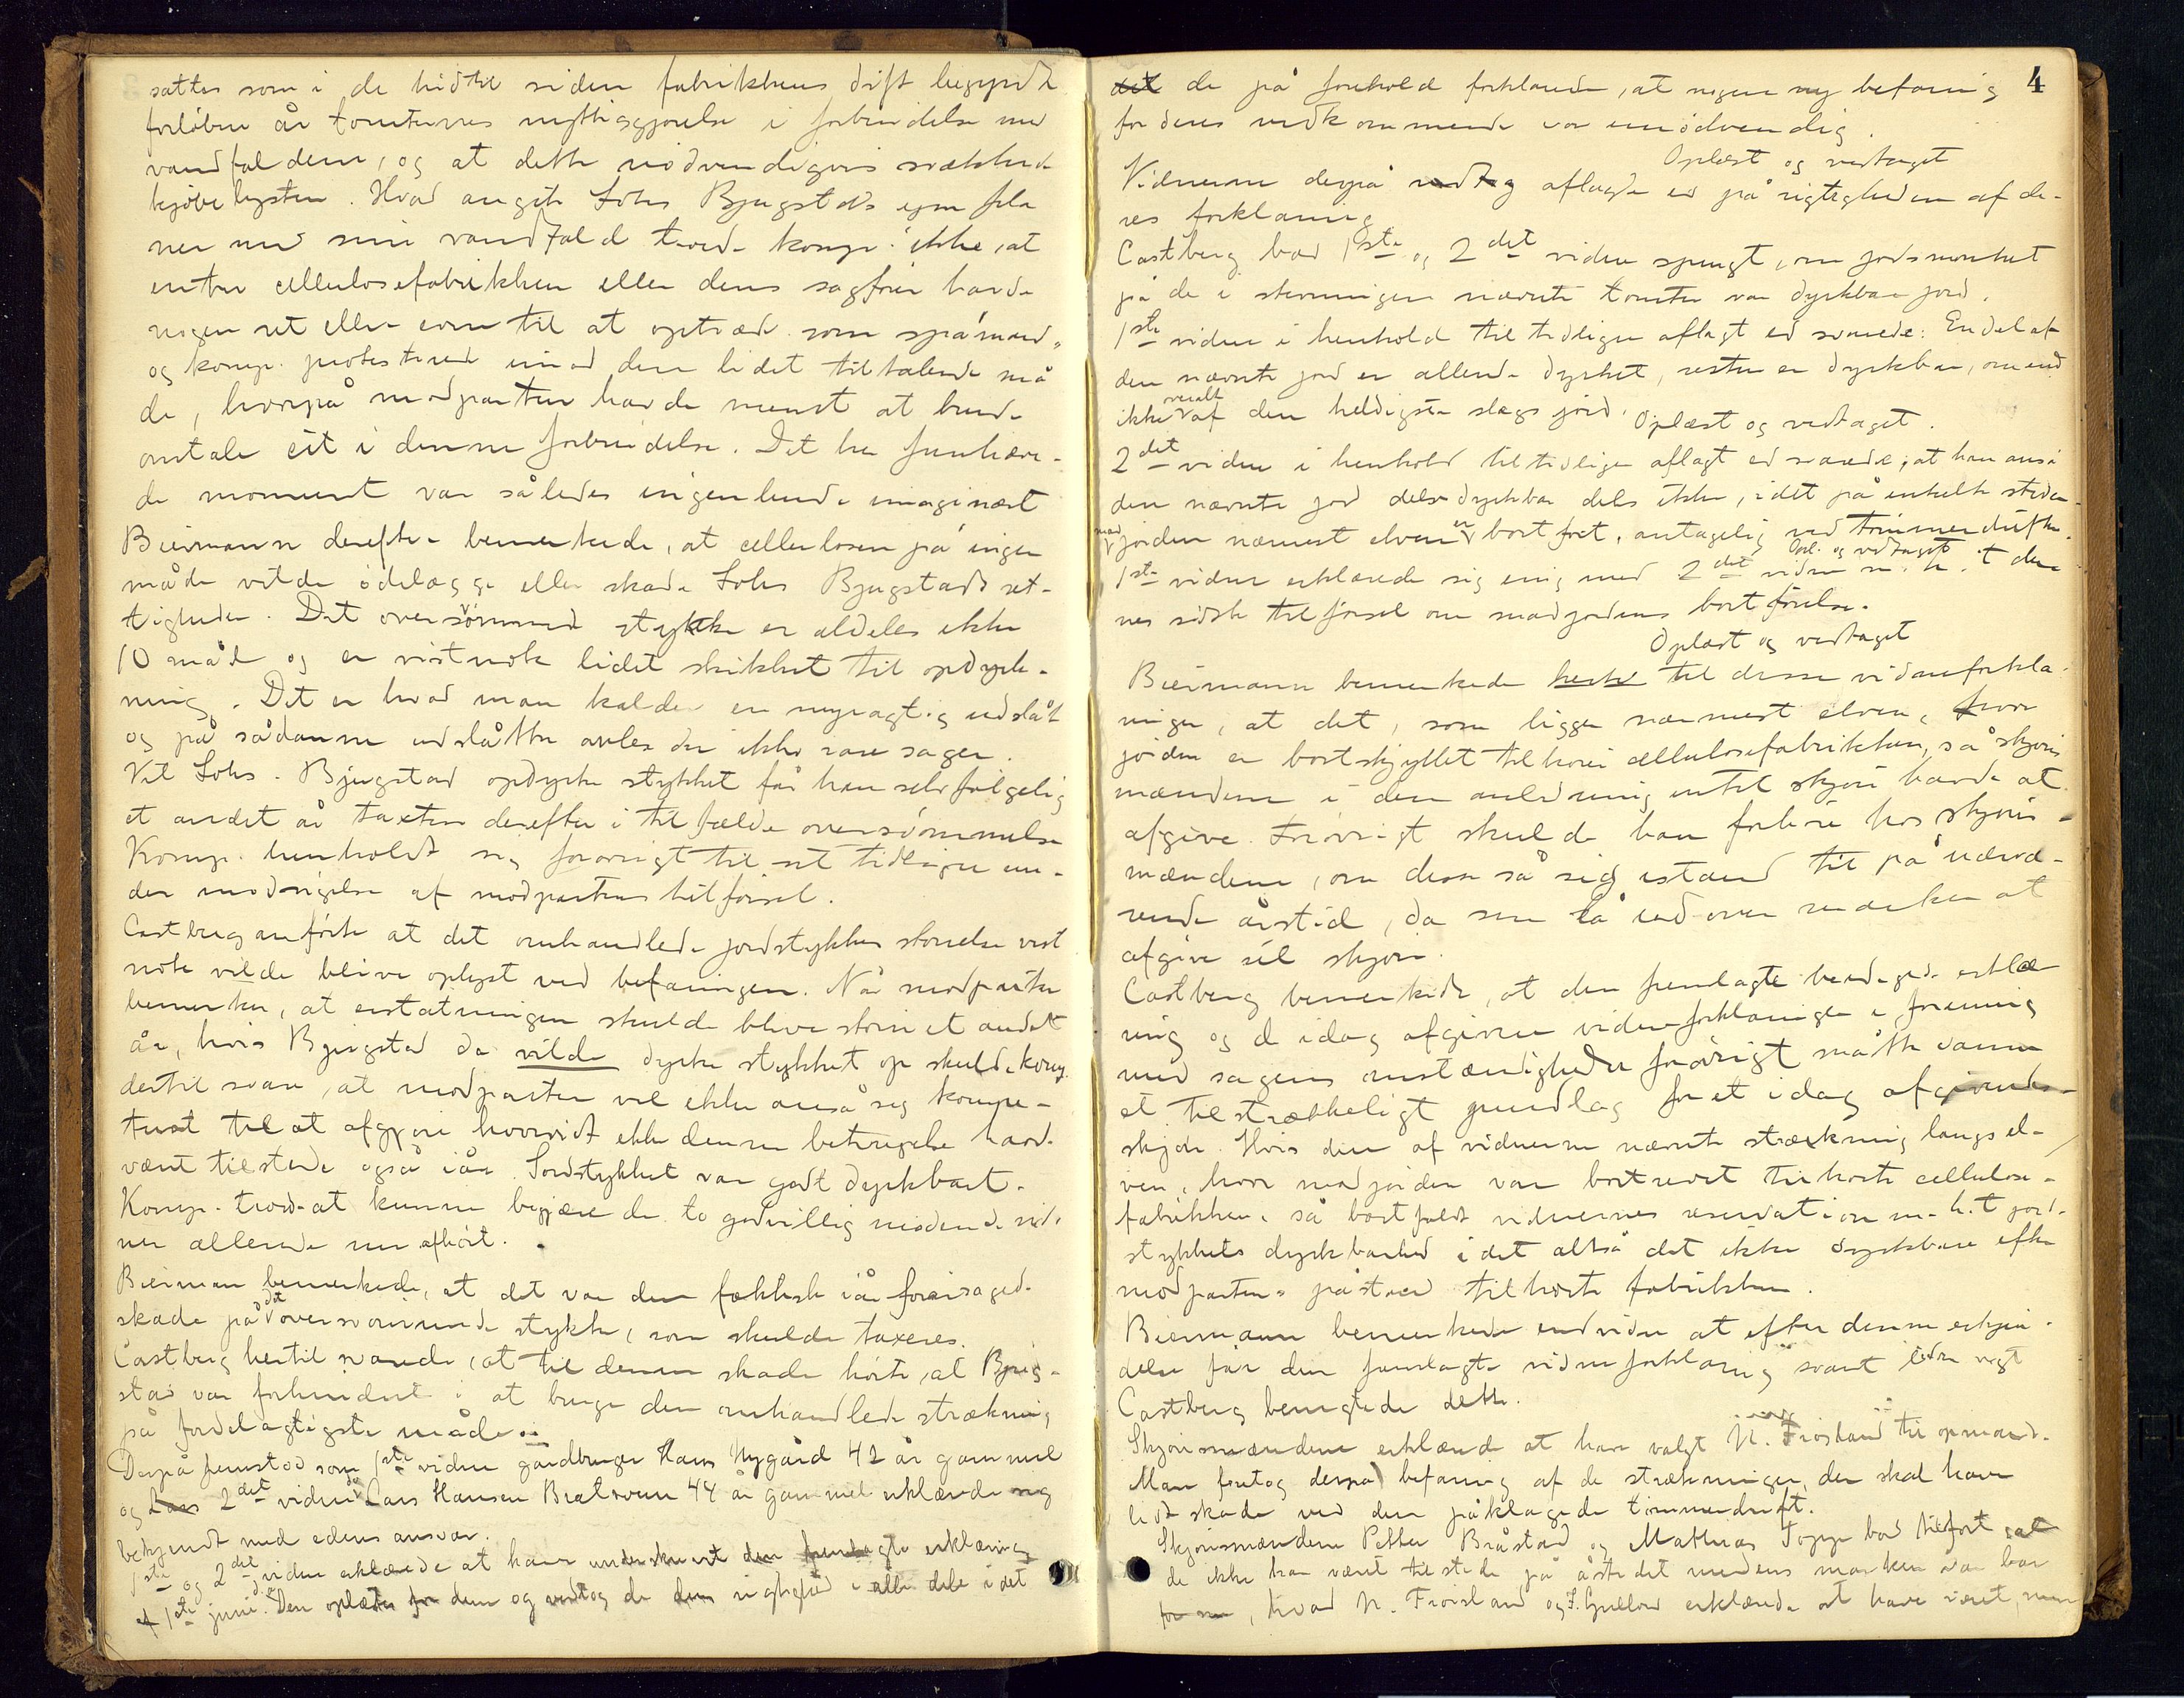 sattes som i de hidtil siden fabrikkens drift begyndte
forløbne år tomternes nyttiggjørelse i forbindelse med
vandfaldene, og at dette nødvendigvis svækkede
kjøbelysten. Hvad angik Johs Bjugstads egne pla
ner med sine vandfald trode komp. ikke, at
enten cellulosefabrikken eller dens sagfører havde
nogen ret eller evne til at optræde som spåmænd,
og komp. protesterede imod den lidet tiltalende må
de, hvorpå modparten havde menst at burde
omtale sit i denne forbindelse. Det her fremhæve-
de moment var således ingenlunde imaginært
Biermann derefter bemerkede, at cellulosen på ingen
måde vilde ødelægge eller skade Johs Bjugstads ret-
tigheder. Det oversvømmede stykke er aldeles ikke
10 mål og er vistnok lidet skikket til opdyrk-
ning. Det er hvad man kalder en myragtig udslåt
og på sådanne udslåtter avles der ikke rare sager.
Vil Johs. Bjugstad opdyrke stykket får han selvfølgelig
et andet år taxten derefter i tilfælde oversvømmelse
Komp. henholdt sig forøvrigt til sit tidligere un-
der modsigelse af modpartens tilførsel.
Castberg anførte at det omhandlede jordstykkes størrelse vist
nok vilde blive oplyst ved befaringen. Når modparten
bemerker, at erstatningen skulde blive større et andet
år, hvis Bjugstad da vilde dyrke stykket op skulde komp.
dertil svare, at modparten vel ikke anså sig kompe-
tent til at afgjøre hvorvidt ikke denne betingelse havde
været tilstede også iår. Jordstykket var godt dyrkbart.
Komp. trode at kunne begjære de to godvillig mødende vid-
ner allerede nu afhørt.
Bierman bemerkede, at det var den faktisk iår forårsagede
skade på det oversvømmede stykke, som skulde taxeres.
Castberg hertil svarede, at til denne skade hørte, at Bjug-
stad var forhindret i at bruge den omhandlede strækning
på fordelagtigste måde.
Derpå fremstod som 1ste vidne gårdbruger Hans Nygård 42 år gammel
og Lars 2det vidne Lars Hansen Bratsveen 44 år gammel erklærede sig
bekjendt med edens ansvar.
1ste og 2det vidne erklærede at have underskrevet den fremlagte erklæring
af 1ste juni. Den oplæstes for dem og vedtog de den riktighed i alle dele idet
4
det de på forehold forklarede, at nogen ny befaring
for deres vedkommende var unødvendig.
Oplæst og vedtaget
Vidnerne derpå vedtog aflagde ed på rigtigheden af de-
res forklaring
Castberg bad 1ste og 2det vidne spurgt, om jordsmonnet
på de i stevningen nævnte tomter var dyrkbar jord.
1ste vidne i henhold til tidligere aflagt ed svarede: En del af
den nævnte jord er allerede dyrket, resten er dyrkbar, om end
ikke overalt af den heldigste slags jord. Oplæst og vedtaget.
2det vidne i henhold til tidligere aflagt ed svarede, at han anså
den nævnte jord dels dyrkbar dels ikke, idet på enkelte steder
mad jorden nærmest elven er bortført, antagelig ved tømmerdriften.
Opl. og vedtaget
1ste vidne erklærede sig enig med 2det vidne m. h. t den-
nes sidste tilførsel om madjordens bortførelse.
Oplæst og vedtaget
Biermann bemerkede hertil til disse vidneforkla
ringer, at det, som ligger nærmest elven, hvor
jorden er bortskyllet tilhører cellulosefabrikken, så skjøns
mændene i den anledning intet skjøn havde at
afgive. Forøvrigt skulde han forhøre hos skjøns-
mændene, om disse så sig istand til på nærvæ-
rende årstid, da sne lå udover marken at
afgive sit skjøn.
Castberg bemerkede, at den fremlagte beedigede erklæ
ring og de idag afgivne vidneforklaringer i forening
med sagens omstændigheder forøvrigt måtte danne
et tilstrækkeligt grundlag for et idag afgivende
skjøn. Hvis den af vidnerne nævnte strækning langs el-
ven, hvor madjorden var bortrevet tilhørte cellulose-
fabrikken, så bortfaldt vidnernes reservation m. h. t jord-
stykkets dyrkbarhed idet altså det ikke dyrkbare efter
modpartens påstand tilhørte fabrikken.
Biermann bemerkede endvidere at efter denne erkjen-
delse får den fremlagte vidneforklaring svært liden vægt
Castberg benegtede dette.
Skjønsmændene erklærede at have valgt N. Frøisland til opmand.
Man foretog derpå befaring af de strækninger, der skal have
lidt skade ved den påklagede tømmerdrift.
Skjønsmændene Petter Bråstad og Mathias Topp bad tilført at
de ikke har været tilstede på åstedet medens marken var bar
før nu, hvad N. Frøisland og J. Gullord erklærede at have været, men